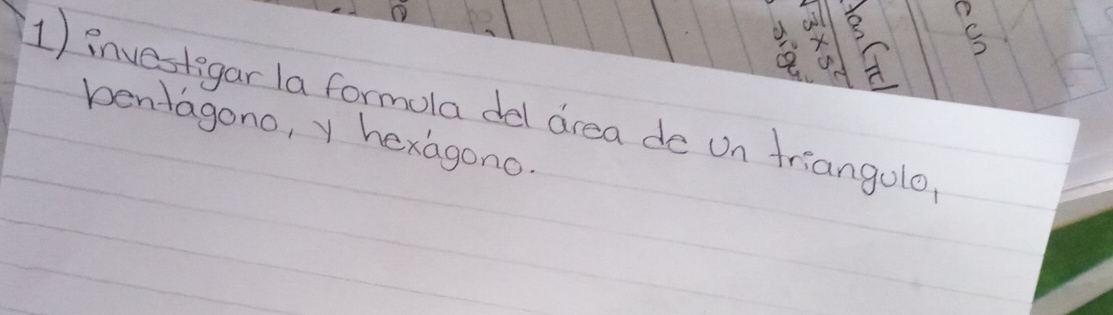 1) investigar la formula del área de un triangulo,
pentágono, y hexágono.
tan (π
√3 × s²
cun